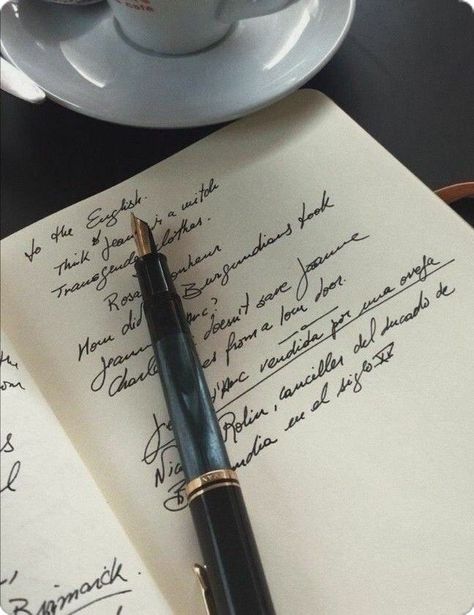 café
to the English.
Think Jean is a witch
Transgende clothes.
Rosa Bonheur
How did Burgundians took
Jeanne Arc?
Charles doesn't save Jeanne
comes from a low door.
Je d'Arc vendida por una oveja
Nic Rolin, canciller del ducado de
B ndia en el siglo XV
Bismarck.